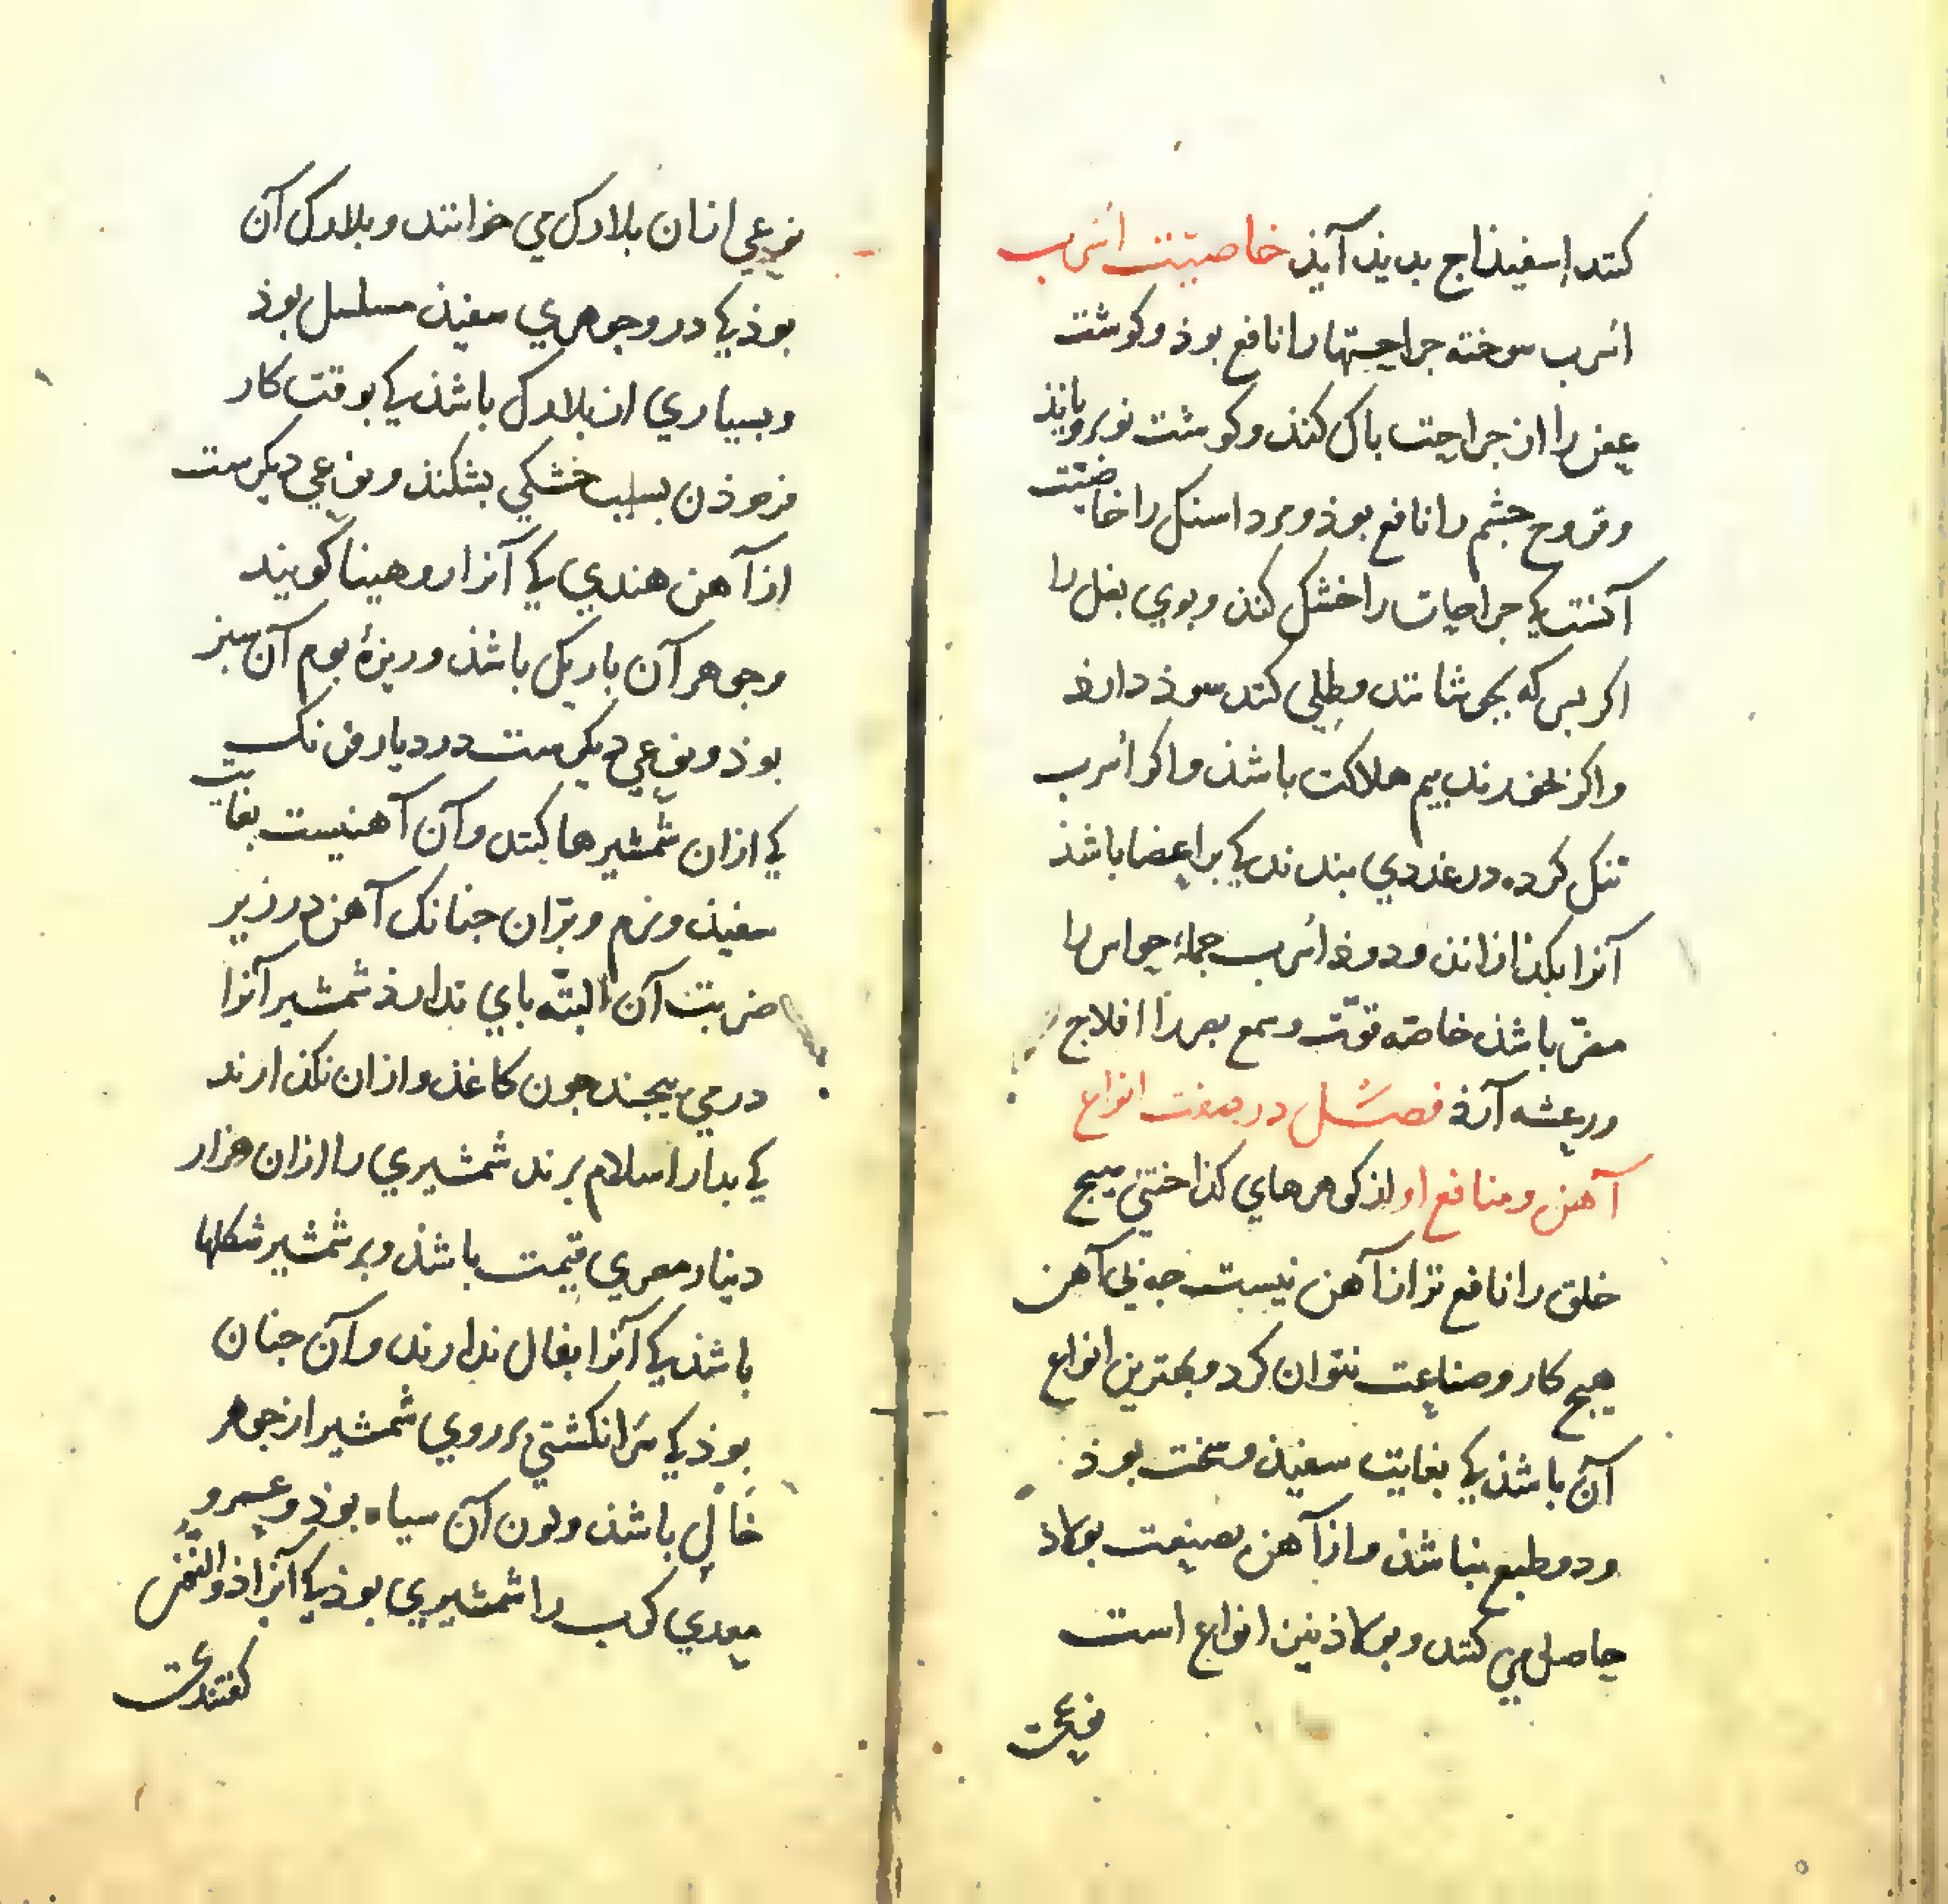 کنند اسفیذاج بدیذ آیذ خاصیّت اسرب
اسرب سوخته جراحتها را نافع بوذ و کوشت
عفن را از جراحت باک کنذ و کوشت نو برویانذ
و قروح جشم را نافع بوذ و مرداسنک را خاصیّت
آنست کی جراحات را خشک کنذ و بوی بغل را
اکر بس که بجوشانند و طلی کنند سوذ دارذ
و اکر بخورند بیم هلاکت باشذ و اکر اسرب
تنک کرده در غددی بندند کی بر اعضا باشذ
آنرا بکذازانذ و دوذ اسرب جملهٔ حواس را
مضرّ باشذ خاصّه قوّت سمع بصر را افلاج
و رعشه آرذ فصل در صفت انواع
آهن و منافع او از کوهرهای کذاختنی هیج
خلق را نافع تر از آهن نیست جه بی آهن
هیج کار و صناعت نتوان کرد و بهترین انواع
آن باشذ کی بغایت سفیذ و سخت بوذ
و دو طبع نباشذ و از آهن بصنعت بولاذ
حاصل می کنند و بولاذ نیز انواع است
نوعیست
نوعی از ان بلارک می خوانند و بلارک آن
بوذ کی درو جوهری سفیذ مسلسل بوذ
و بسیاری از بلارک باشذ کی بوقت کار
فرموذن بسبب خشکی بشکنذ و نوعی دیکرست
از آهن هندی کی آنرا روهینا کویند
و جوهر آن باریک باشذ و ریزهٔ بوم آن سبز
بوذ و نوعی دیکرست در دیار فرنک
کی ازان شمشیرها کنند و آن آهنیست بغایت
سفیذ و نرم و برّان جنانک آهن در زیر
ضربت آن البتّه بای ندارذ شمشیر آنرا
در می بیجند جون کاغذ و ازان نکذارند
کی بدار اسلام برند شمشیری را ازان هزار
دینار مصری قیمت باشذ و بر شمشیر شکلها
باشذ کی آنرا بفال ندارند و آن جنان
بوذ کی سر انکشتی بر روی شمشیر از جوهر
خالی باشذ و لون آن سیاه بوذ و عمرو
معدی کرب را شمشیری بوذ کی آنرا ذو النون
کفتندی